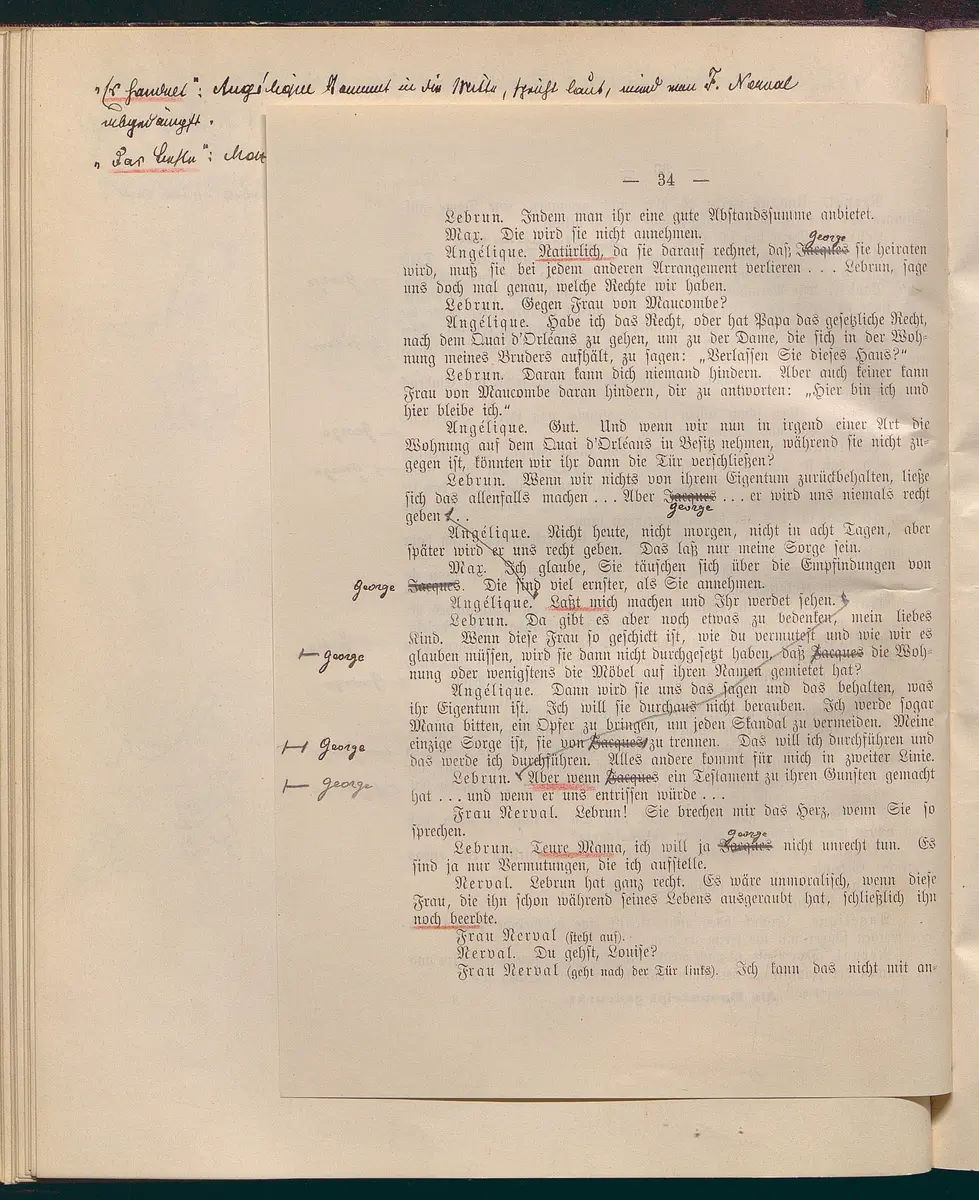 Angélique kommt in die Mitte, spricht laut, wird von F. Nerval
abgedämpft.
— 34 —
Lebrun. Indem man ihr eine gute Abstandssumme anbietet.
Max. Die wird sie nicht annehmen.
George
Angélique. Natürlich, da sie darauf rechnet, daß Jacques sie heiraten
wird, muß sie bei jedem anderen Arrangement verlieren . . . Lebrun, sage
uns doch mal genau, welche Rechte wir haben.
Lebrun. Gegen Frau von Maucombe?
Angélique. Habe ich das Recht, oder hat Papa das gesetzliche Recht,
nach dem Quai d'Orléans zu gehen, um zu der Dame, die sich in der Woh-
nung meines Bruders aufhält, zu sagen: „Verlassen Sie dieses Haus?“
Lebrun. Daran kann dich niemand hindern. Aber auch keiner kann
Frau von Maucombe daran hindern, dir zu antworten: „Hier bin ich und
hier bleibe ich.“
Angélique. Gut. Und wenn wir nun in irgend einer Art die
Wohnung auf dem Quai d'Orléans in Besitz nehmen, während sie nicht zu-
gegen ist, könnten wir ihr dann die Tür verschließen?
Lebrun. Wenn wir nichts von ihrem Eigentum zurückbehalten, ließe
sich das allenfalls machen . . . Aber Jacques . . . er wird uns niemals recht
George
geben . . .
Angélique. Nicht heute, nicht morgen, nicht in acht Tagen, aber
später wird er uns recht geben. Das laß nur meine Sorge sein.
Max. Ich glaube, Sie täuschen sich über die Empfindungen von
George Jacques. Die sind viel ernster, als Sie annehmen.
Angélique. Laßt mich machen und Ihr werdet sehen.
Lebrun. Da gibt es aber noch etwas zu bedenken, mein liebes
Kind. Wenn diese Frau so geschickt ist, wie du vermutest und wie wir es
George glauben müssen, wird sie dann nicht durchgesetzt haben, daß Jacques die Woh-
nung oder wenigstens die Möbel auf ihren Namen gemietet hat?
Angélique. Dann wird sie uns das sagen und das behalten, was
ihr Eigentum ist. Ich will sie durchaus nicht berauben. Ich werde sogar
Mama bitten, ein Opfer zu bringen, um jeden Skandal zu vermeiden. Meine
George einzige Sorge ist, sie von Jacques zu trennen. Das will ich durchführen und
das werde ich durchführen. Alles andere kommt für mich in zweiter Linie.
George Lebrun. Aber wenn Jacques ein Testament zu ihren Gunsten gemacht
hat . . . und wenn er uns entrissen würde . . .
Frau Nerval. Lebrun! Sie brechen mir das Herz, wenn Sie so
sprechen.
George
Lebrun. Teure Mama, ich will ja Jacques nicht unrecht tun. Es
sind ja nur Vermutungen, die ich aufstelle.
Nerval. Lebrun hat ganz recht. Es wäre unmoralisch, wenn diese
Frau, die ihn schon während seines Lebens ausgeraubt hat, schließlich ihn
noch beerbte.
Frau Nerval (steht auf).
Nerval. Du gehst, Louise?
Frau Nerval (geht nach der Tür links). Ich kann das nicht mit an-